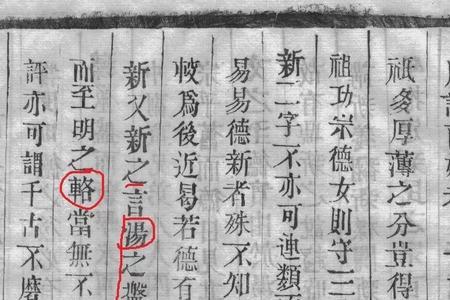 祇多厚薄之分豈得
祖功宗德女則守三
新二字不亦可連類
易易德新者殊不知
彼爲後近曷若德有
新又新之言湯之盤
而至明之輅當無不
評亦可謂千古不磨